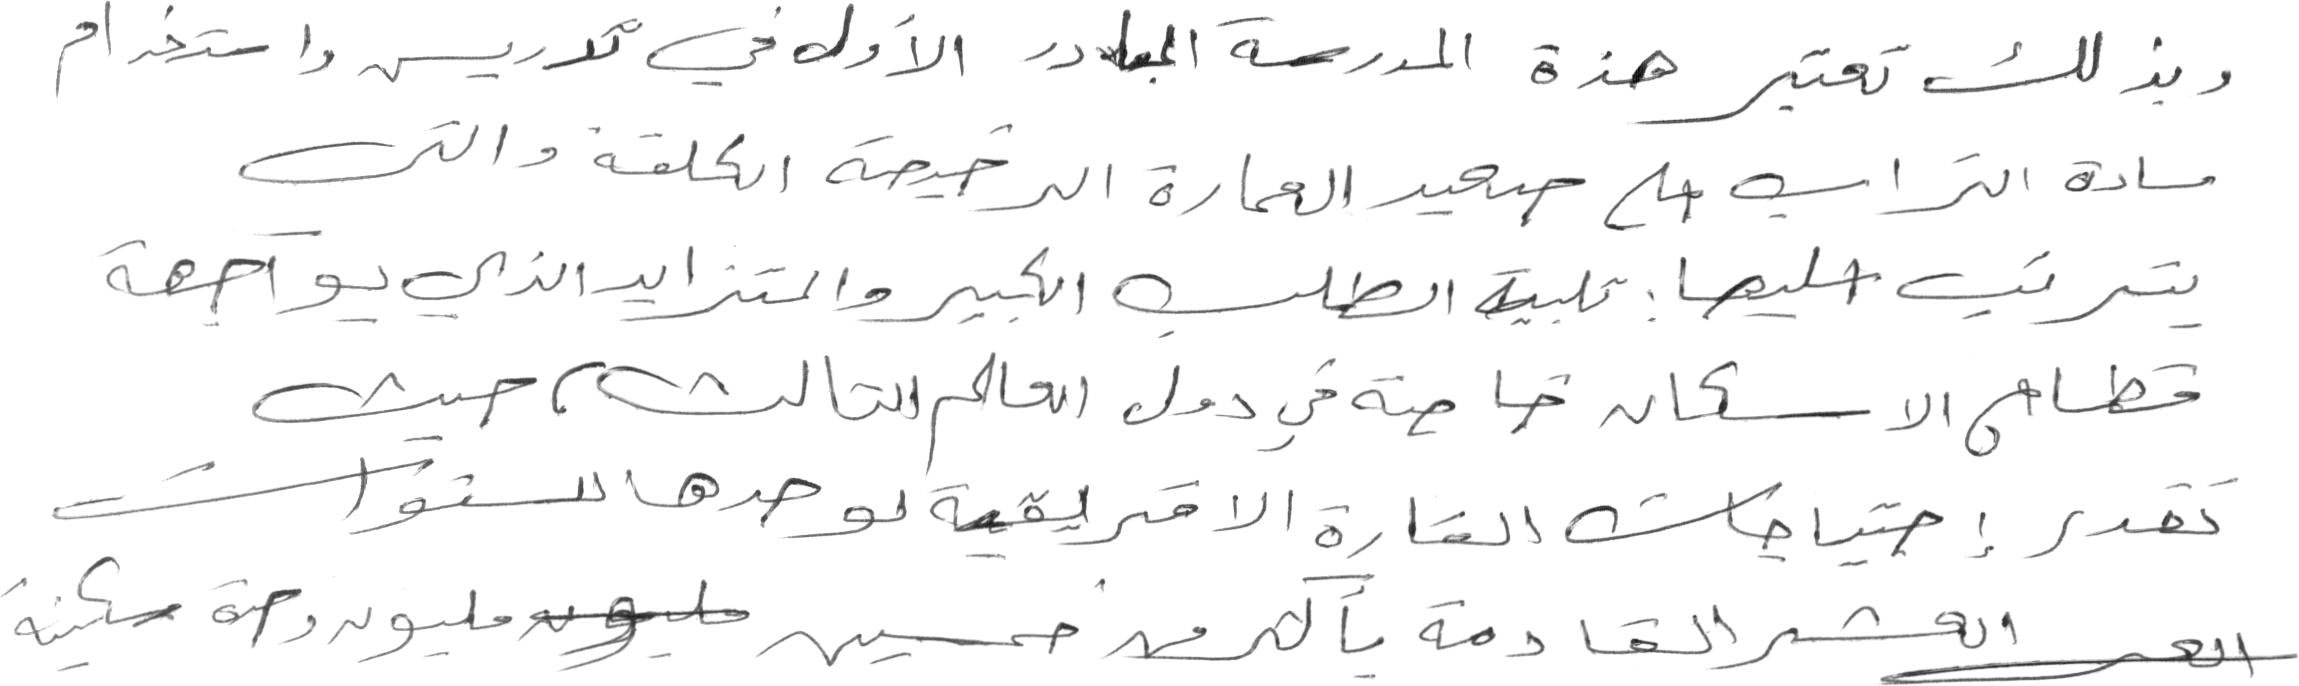 وبذلك تعتبر هذة المدرسة المبادر الأول في تدريس واستخدام
مادة التراب على صعيد العمارة الرخيصة الكلفة والتى
يترتب عليها: تلبية الطلب الكبير والمتزايد الذي يواجهة
قطاع الاسكان خاصة في دول العالم الثالث، حيث
تقدر إحتياجات القارة الافريقية لوحدها للسنوات
العشر القادمة بأكثر من خمسين مليون وحدة سكنية